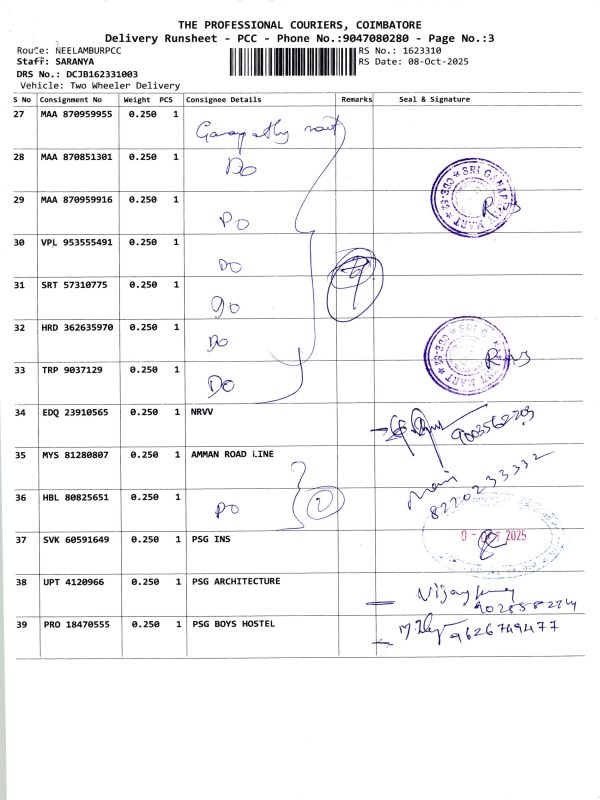 THE PROFESSIONAL COURIERS, COIMBATORE
Delivery Runsheet - PCC - Phone No.:9047080280 - Page No.:3
Route: NEELAMBURPCC RS No.: 1623310
Staff: SARANYA RS Date: 08-Oct-2025
DRS No.: DCJB162331003
Vehicle: Two Wheeler Delivery
S No Consignment No Weight PCS Consignee Details Remarks Seal & Signature
27 MAA 870959955 0.250 1
28 MAA 870851301 0.250 1 DO
29 MAA 870959916 0.250 1 DO
30 VPL 953555491 0.250 1 DO
31 SRT 57310775 0.250 1 DO
32 HRD 362635970 0.250 1 DO
33 TRP 9037129 0.250 1 DO
34 EDQ 23910565 0.250 1 NRVV
35 MYS 81280807 0.250 1 AMMAN ROAD LINE
36 HBL 80825651 0.250 1 DO 2 8220233332
37 SVK 60591649 0.250 1 PSG INS 2025
38 UPT 4120966 0.250 1 PSG ARCHITECTURE
39 PRO 18470555 0.250 1 PSG BOYS HOSTEL 9626749477